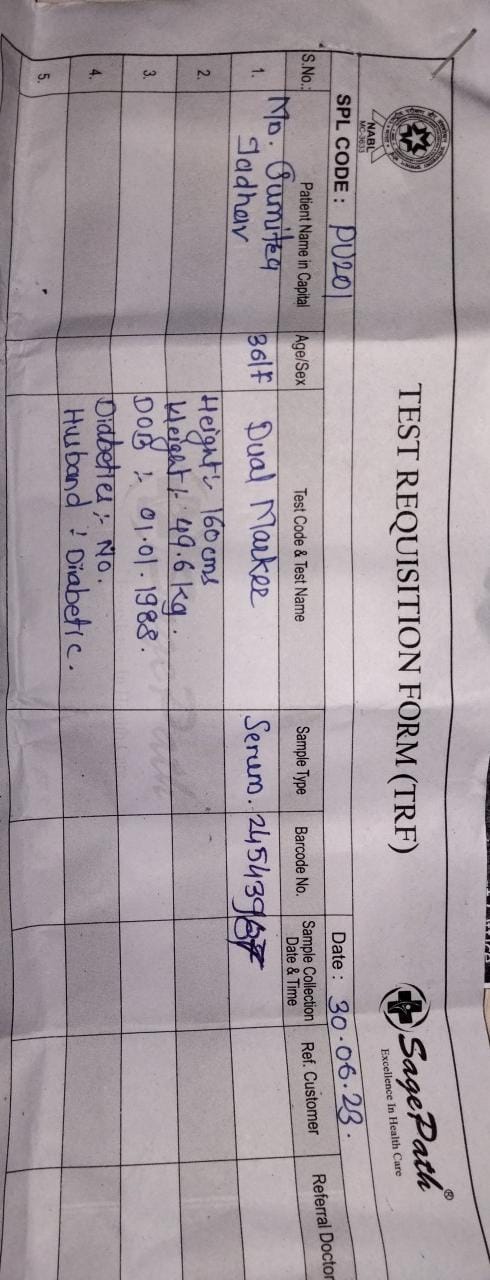 NABL
MC-3633
TEST REQUISITION FORM (TRF)
SagePath®
Excellence In Health Care
SPL CODE : PU201
Date : 30.06.23.
S.No.: Patient Name in Capital Age/Sex Test Code & Test Name Sample Type Barcode No. Sample Collection Date & Time Ref. Customer Referral Doctor
1. Mo. Sumitra Jadhav 36/F Dual Marker Serum. 245439
2. Height :- 160 cms
Weight :- 49.6 kg.
3. DOB :- 01.01.1988.
4. Diabeties :- No.
Husband : Diabetic.
5.